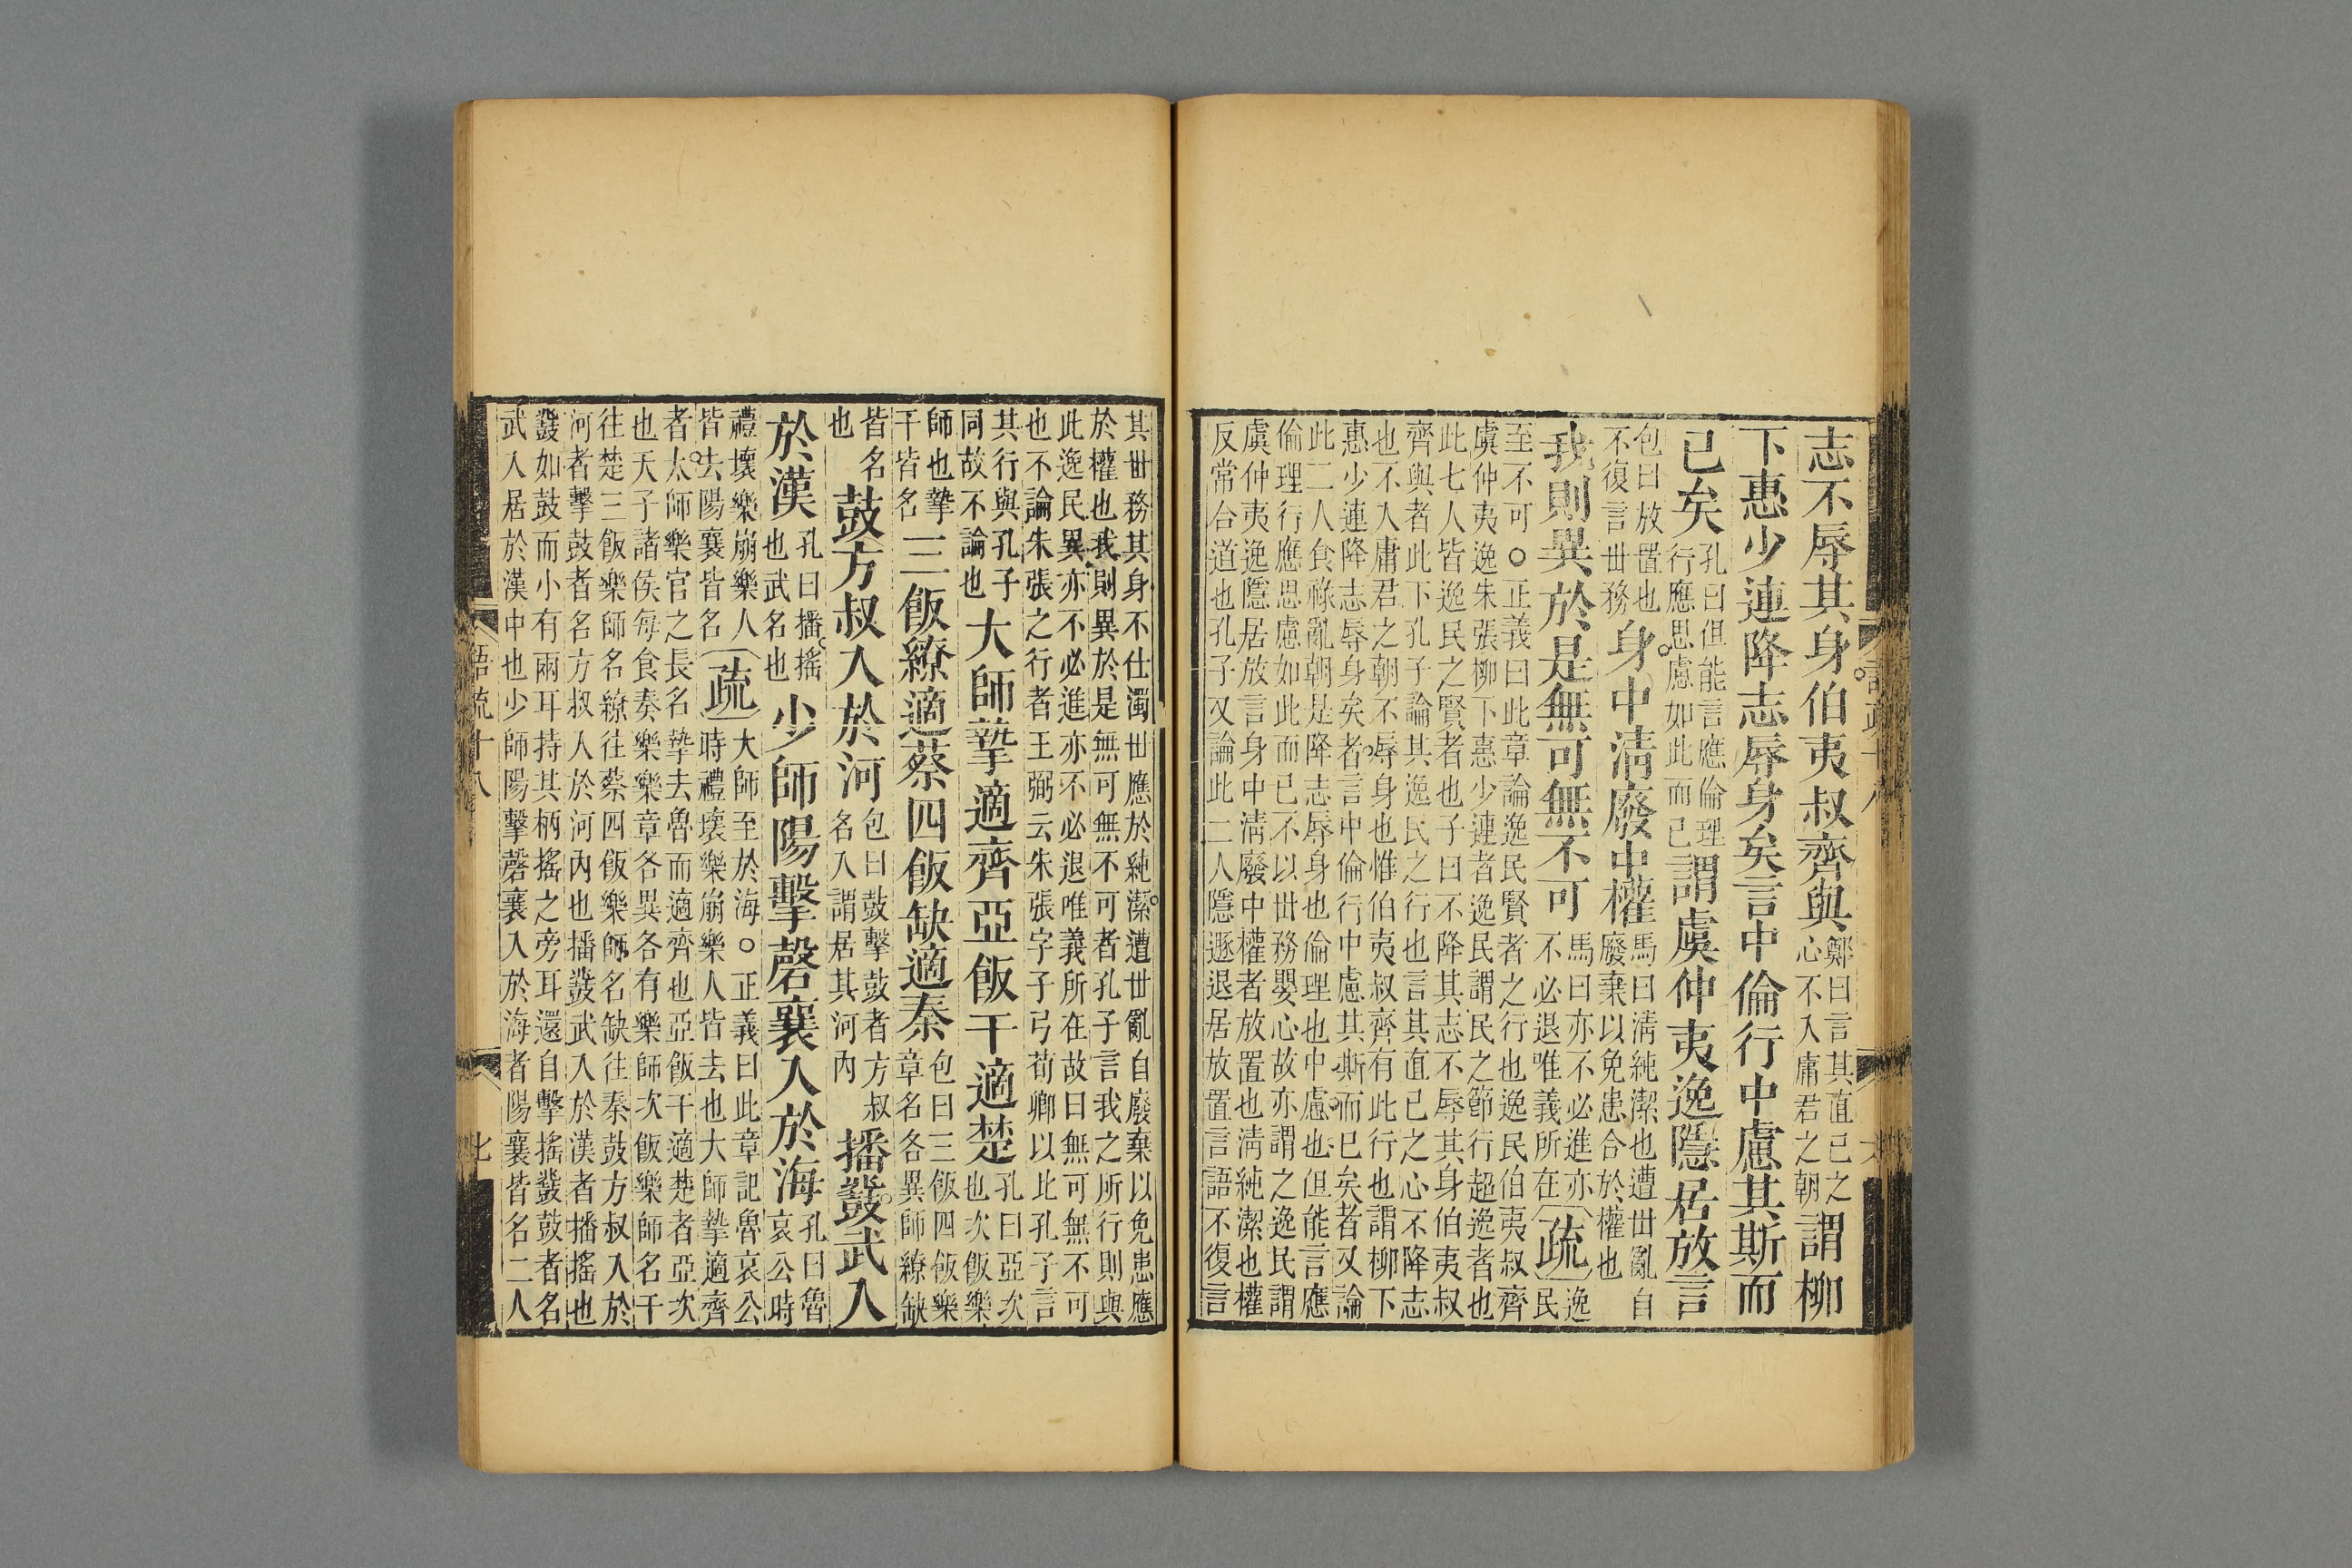 志不辱其身伯夷叔齊與鄭曰言其直己之心不入庸君之朝謂柳
下惠少連降志辱身矣言中倫行中慮其斯而
已矣孔曰但能言應倫理行應思慮如此而已謂虞仲夷逸隱居放言
包曰放置也不復言世務身中清廢中權馬曰清純潔也遭世亂自廢棄以免患合於權也
我則異於是無可無不可馬曰亦不必進亦不必退唯義所在疏逸民
至不可○正義曰此章論逸民賢者之行也逸民伯夷叔齊
虞仲夷逸朱張柳下惠少連者逸民謂民之節行超逸者也
此七人皆逸民之賢者也子曰不降其志不辱其身伯夷叔
齊與者此下孔子論其逸民之行也言其直己之心不降志
也不入庸君之朝不辱身也惟伯夷叔齊有此行也謂柳下
惠少連降志辱身矣者言中倫行中慮其斯而已矣者又論
此二人食祿亂朝是降志辱身也倫理也中慮也但能言應
倫理行應思慮如此而已不以世務嬰心故亦謂之逸民謂
虞仲夷逸隱居放言身中清廢中權者放置也清純潔也權
反常合道也孔子又論此二人隱遯退居放置言語不復言
其世務其身不仕濁世應於純潔遭世亂自廢棄以免患應
於權也我則異於是無可無不可者孔子言我之所行則與
此逸民異亦不必進亦不必退唯義所在故曰無可無不可
也不論朱張之行者王弼云朱張字子弓荀卿以比孔子言
其行與孔子同故不論也大師摯適齊亞飯干適楚孔曰亞次也次飯樂
師也摯干皆名三飯繚適蔡四飯缺適秦包曰三飯四飯樂章名各異師繚缺
皆名也鼓方叔入於河包曰鼓擊鼓者方叔名入謂居其河內播鼗武入
於漢孔曰播搖也武名也少師陽擊磬襄入於海孔曰魯哀公時
禮壞樂崩樂人皆去陽襄皆名疏大師至於海○正義曰此章記魯哀公時禮壞樂崩樂人皆去也大師摯適齊
者太師樂官之長名摯去魯而適齊也亞飯干適楚者亞次
也天子諸侯每食奏樂樂章各異各有樂師次飯樂師名干
往楚三飯樂師名繚往蔡四飯樂師名缺往秦鼓方叔入於
河者擊鼓者名方叔入於河內也播鼗武入於漢者播搖也
鼗如鼓而小有兩耳持其柄搖之旁耳還自擊搖鼗鼓者名
武入居於漢中也少師陽擊磬襄入於海者陽襄皆名二人
語疏十八
七